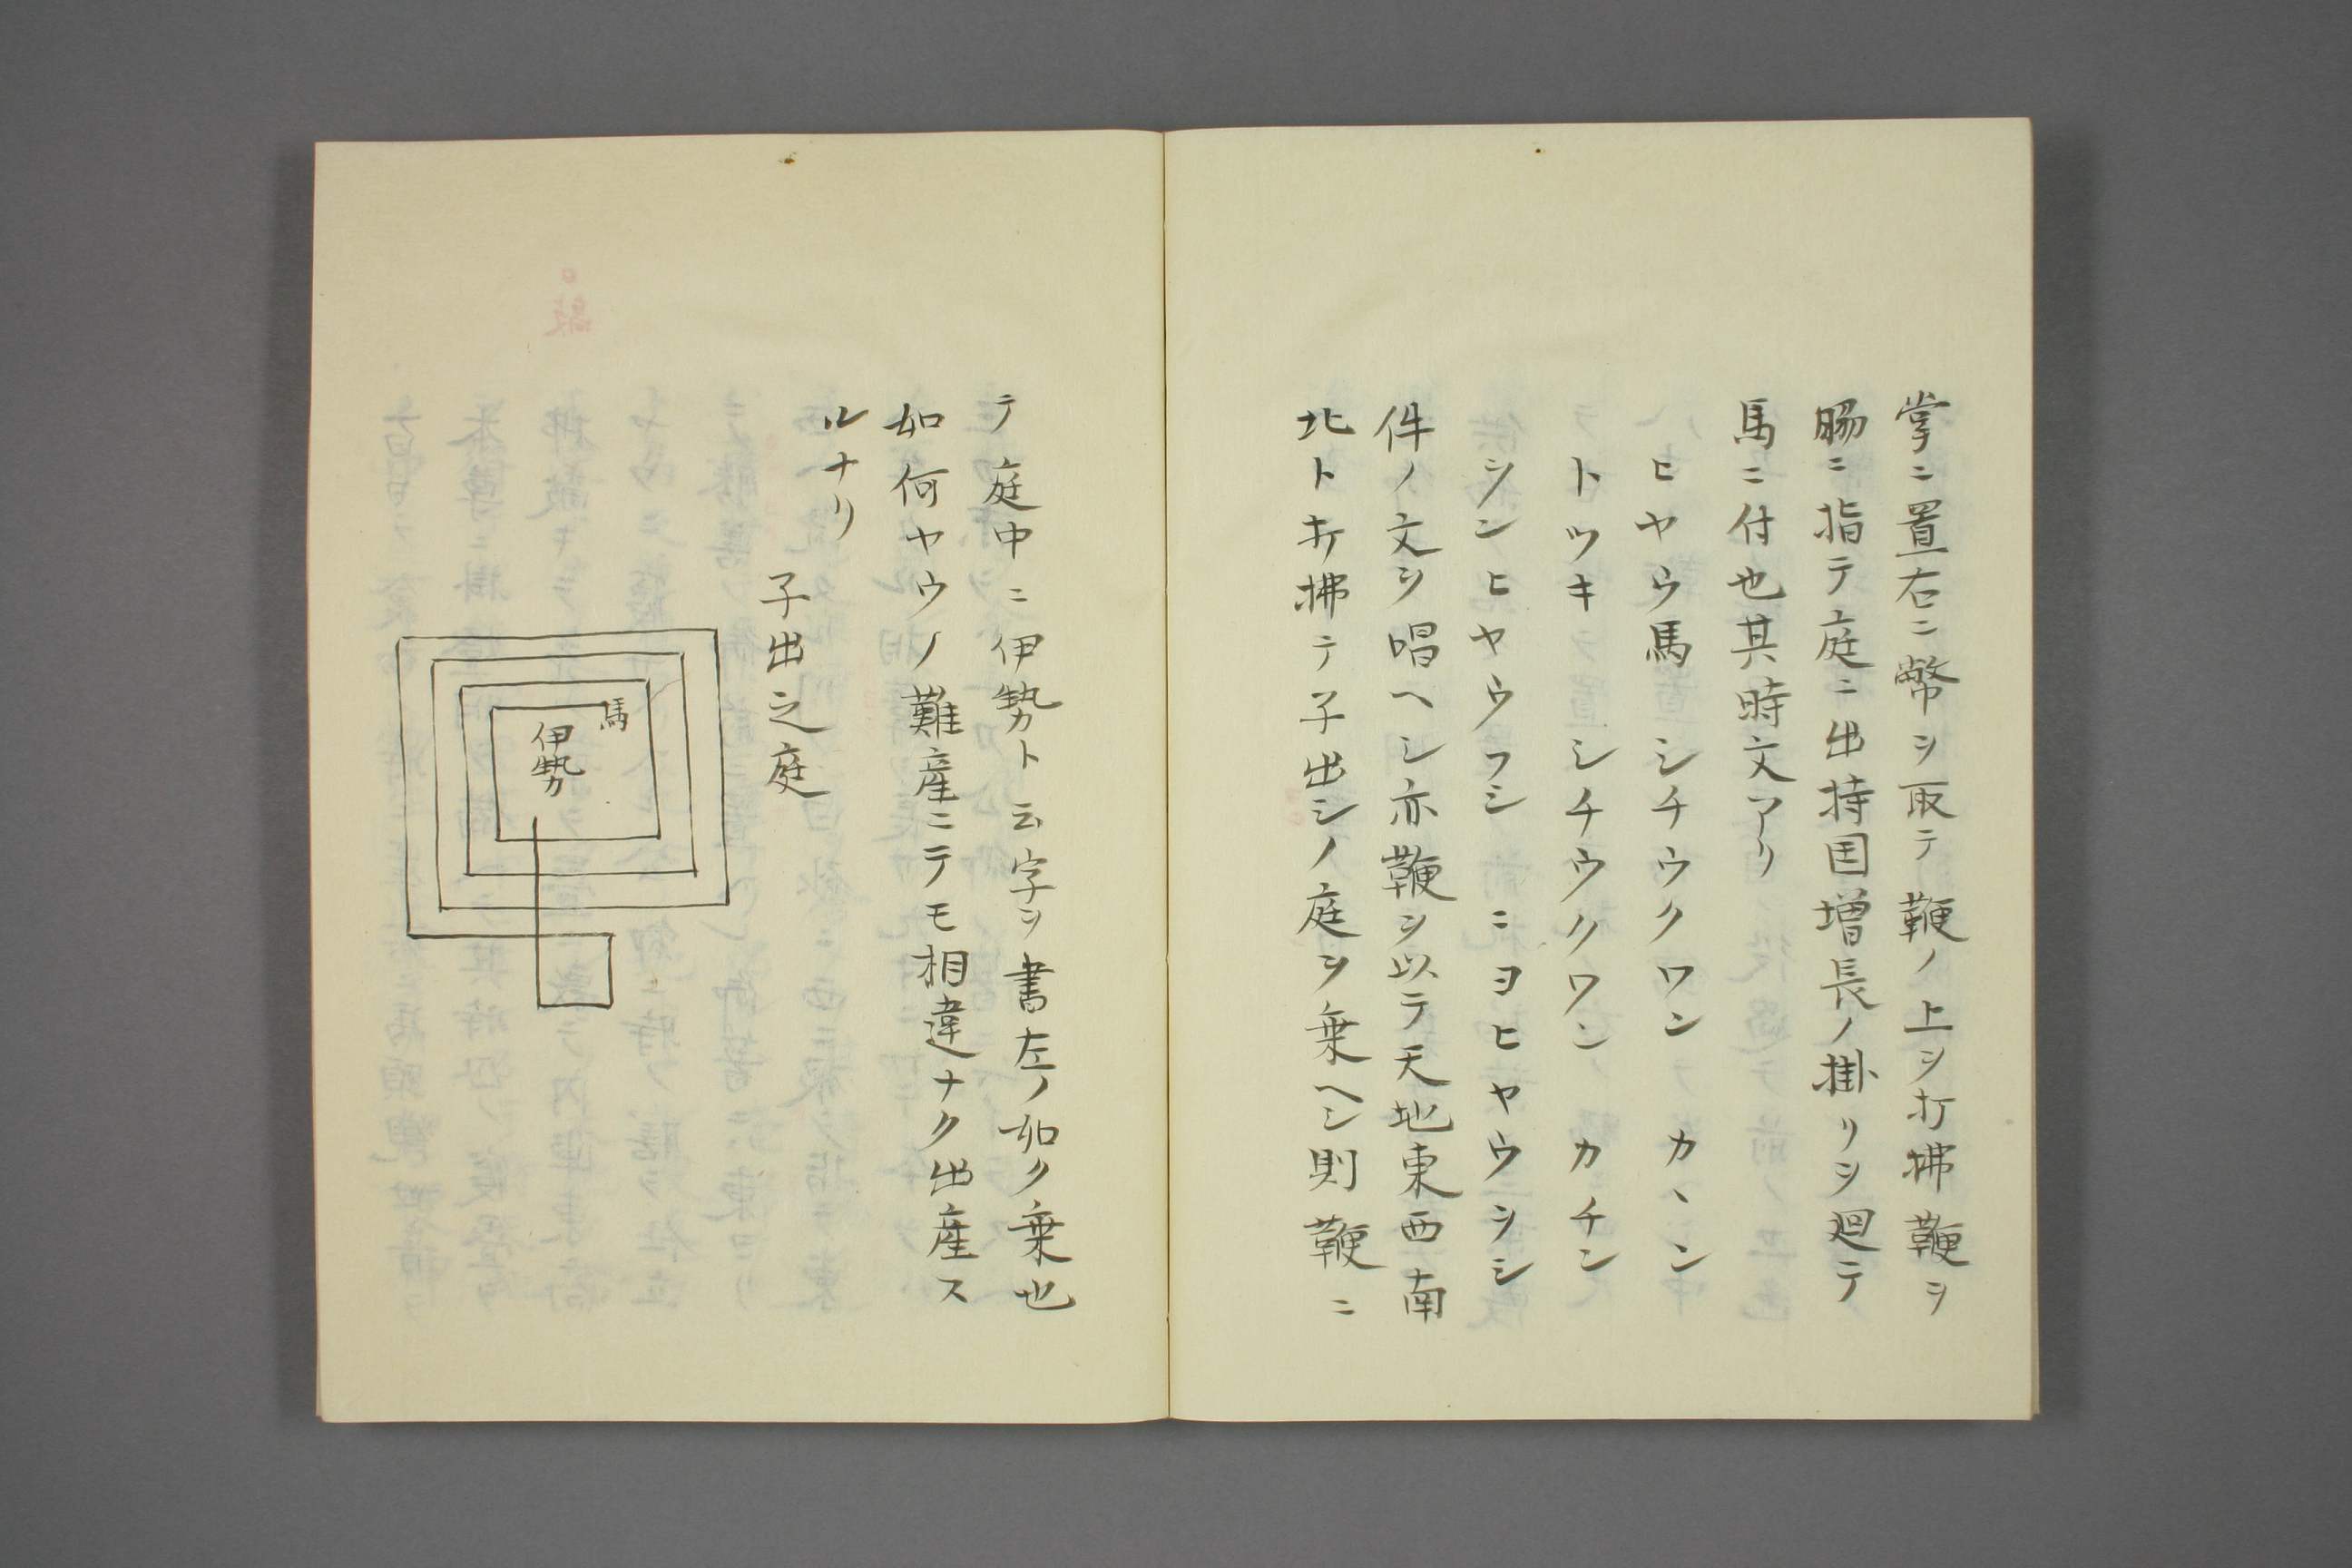 掌ニ置右ニ幣ヲ取テ鞭ノ上ヲ打拂鞭ヲ
腸ニ指テ庭ニ出持国増長ノ掛リヲ廻テ
馬ニ付也其時文アリ
ヒヤウ馬 シチウクワン カヽン
トツキ シチウクワン カチン
シンヒヤウフシ ニヨヒヤウシシ
件ノ文ヲ唱ヘシ亦鞭ヲ以テ天地東西南
北ト打拂テ子出シノ庭ヲ乗ヘシ則鞭ニ
テ庭中ニ伊勢ト云字ヲ書左ノ如ク乗也
如何ヤウノ難産ニテモ相違ナク出産ス
ルナリ
子出之庭
馬
伊勢